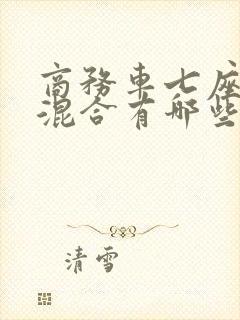 商务车七座
混合有哪些
清雪